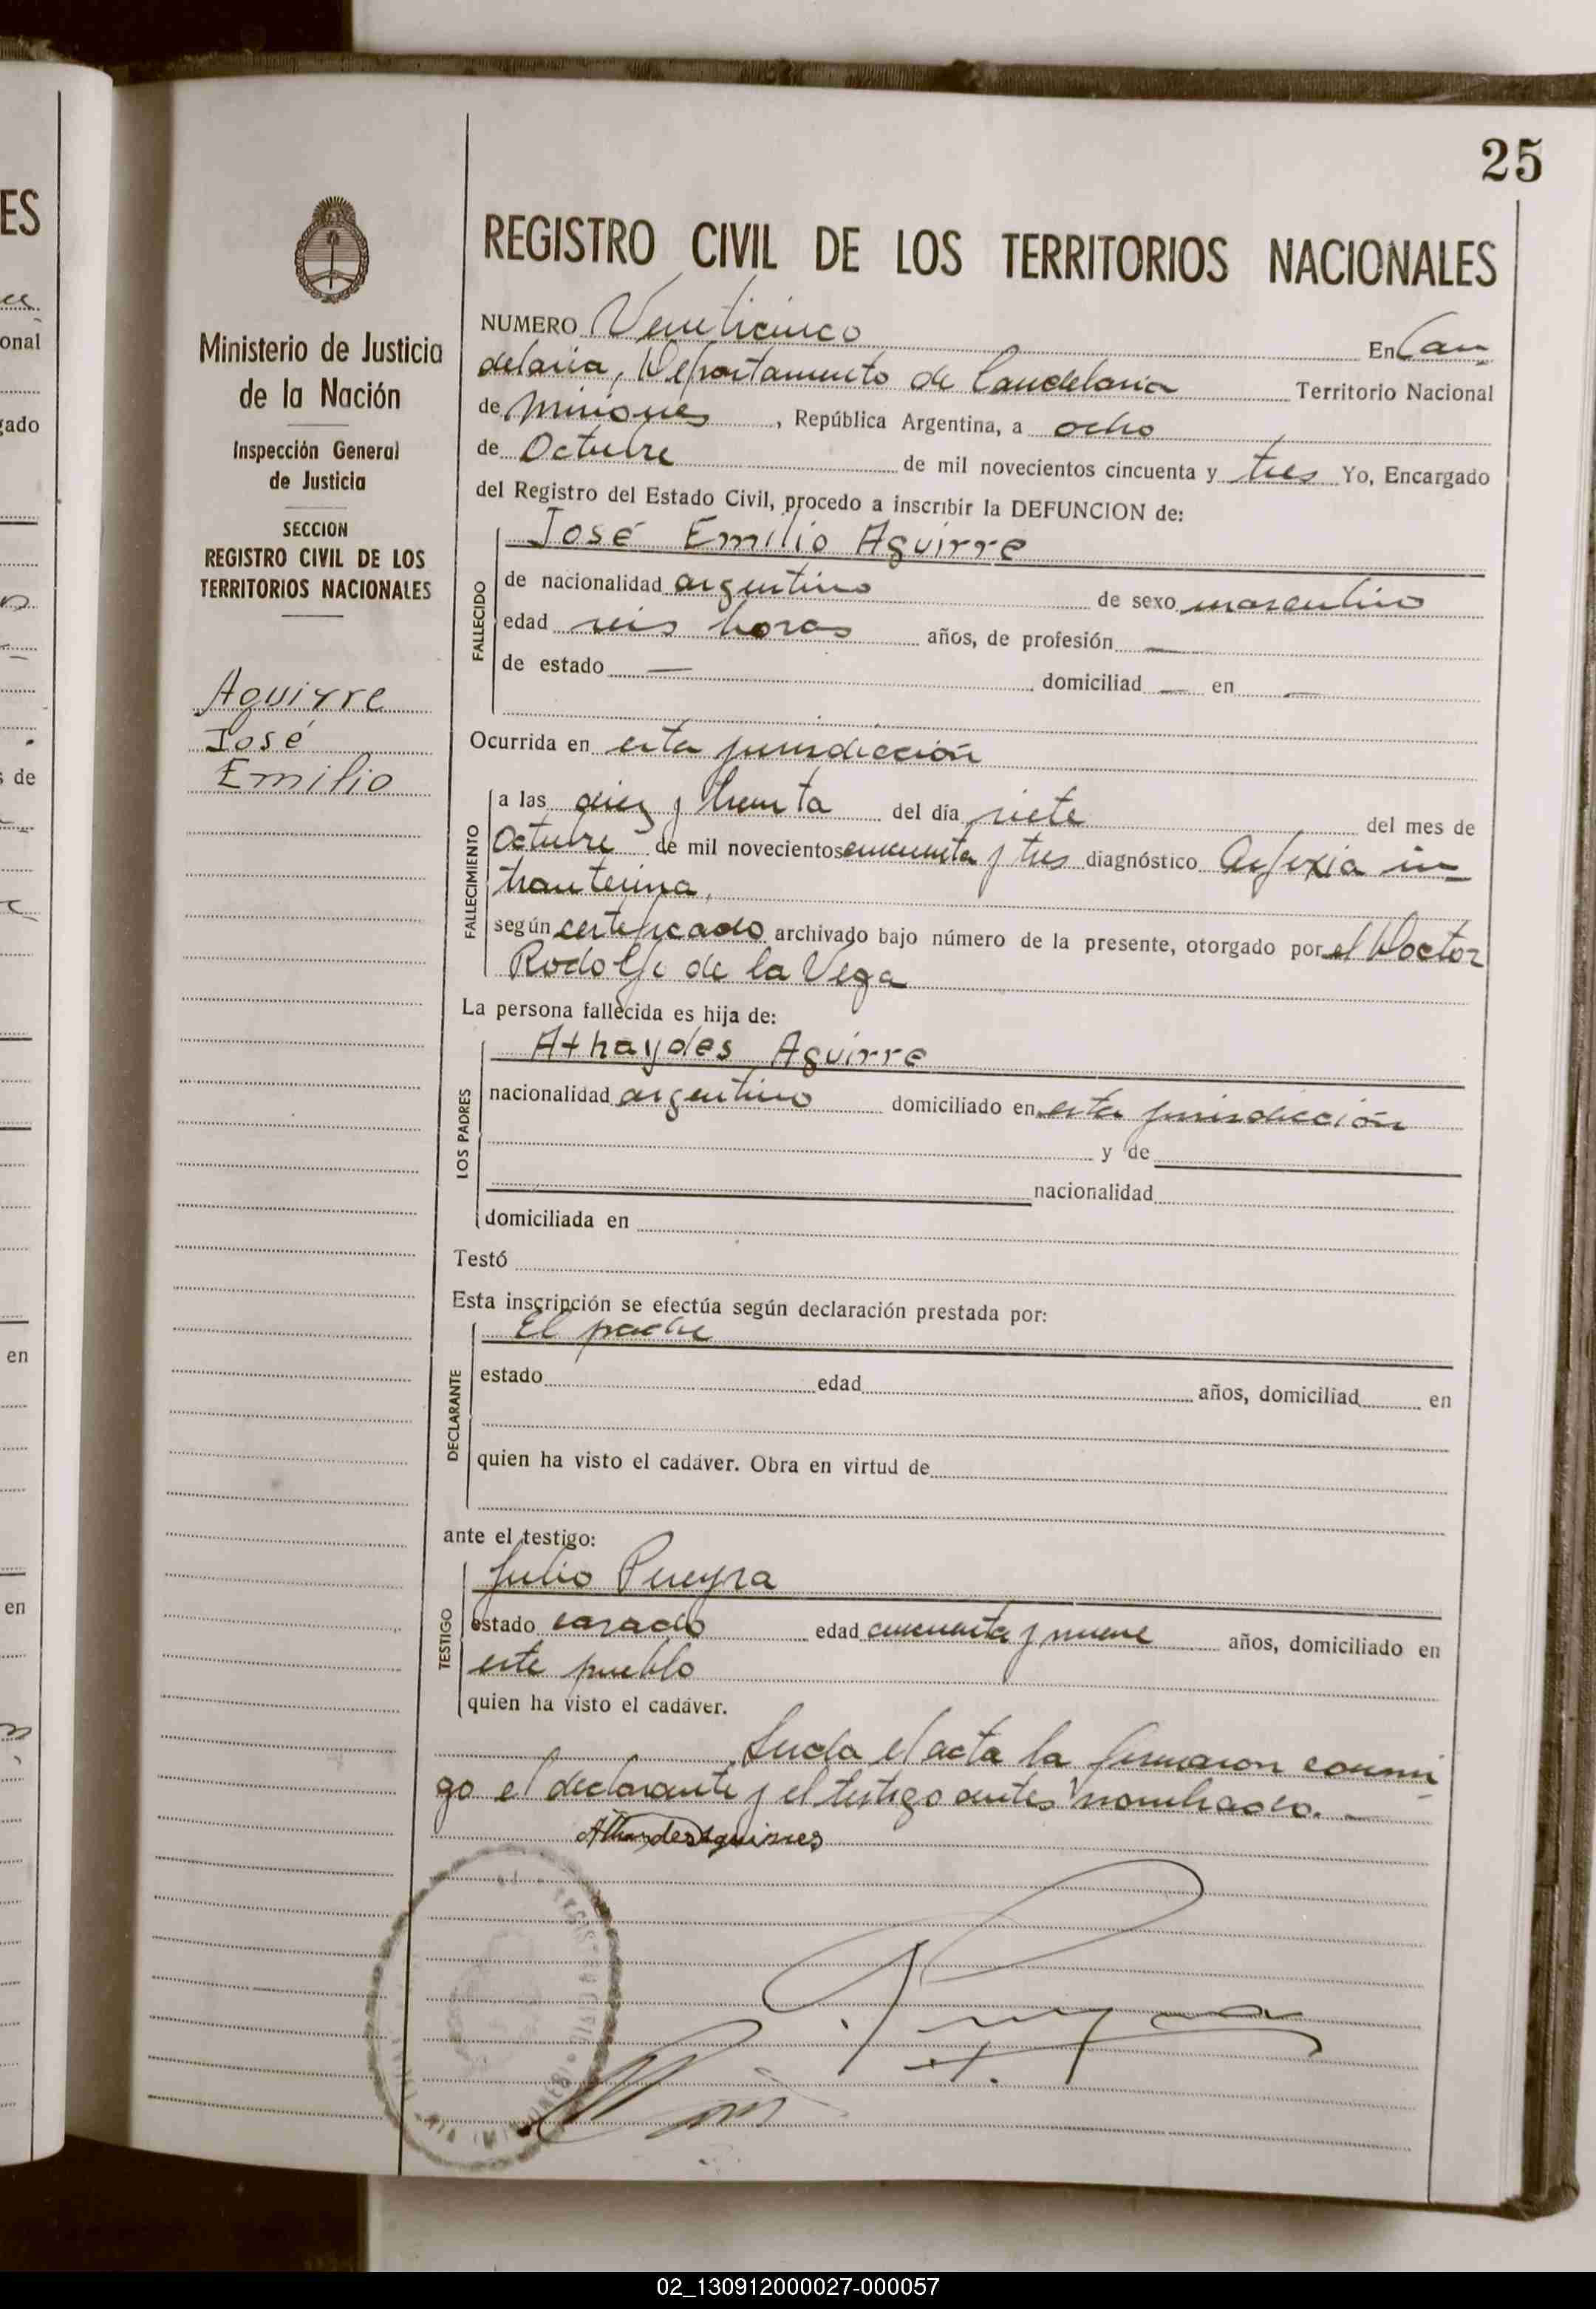 25
REGISTRO CIVIL DE LOS TERRITORIOS NACIONALES
Ministerio de Justicia
de la Nación
Inspección General
de Justicia
SECCION
REGISTRO CIVIL DE LOS
TERRITORIOS NACIONALES
Aguirre
José
Emilio
NUMERO Veinticinco En Can=
delaria, Departamento de Candelaria Territorio Nacional
de Misiones, República Argentina, a ocho
de Octubre de mil novecientos cincuenta y tres Yo, Encargado
del Registro del Estado Civil, procedo a inscribir la DEFUNCION de:
José Emilio Aguirre
FALLECIDO
de nacionalidad argentino de sexo masculino
edad seis horas años, de profesión —
de estado — domiciliad — en —
Ocurrida en esta jurisdicción
FALLECIMIENTO
a las diez y treinta del día siete del mes de
Octubre de mil novecientos cincuenta y tres diagnóstico Asfixia in=
trauterina,
según certificado archivado bajo número de la presente, otorgado por el Doctor
Rodolfo de la Vega
La persona fallecida es hija de:
LOS PADRES
Athaydes Aguirre
nacionalidad argentino domiciliado en esta jurisdicción
y de
nacionalidad
domiciliada en
Testó
Esta inscripción se efectúa según declaración prestada por:
DECLARANTE
El padre
estado edad años, domiciliad en
quien ha visto el cadáver. Obra en virtud de
ante el testigo:
TESTIGO
Julio Pereyra
estado casado edad cincuenta y nueve años, domiciliado en
este pueblo
quien ha visto el cadáver.
Leida el acta la firmaron conmi=
go el declarante y el testigo antes nombrado. —
02_130912000027-000057